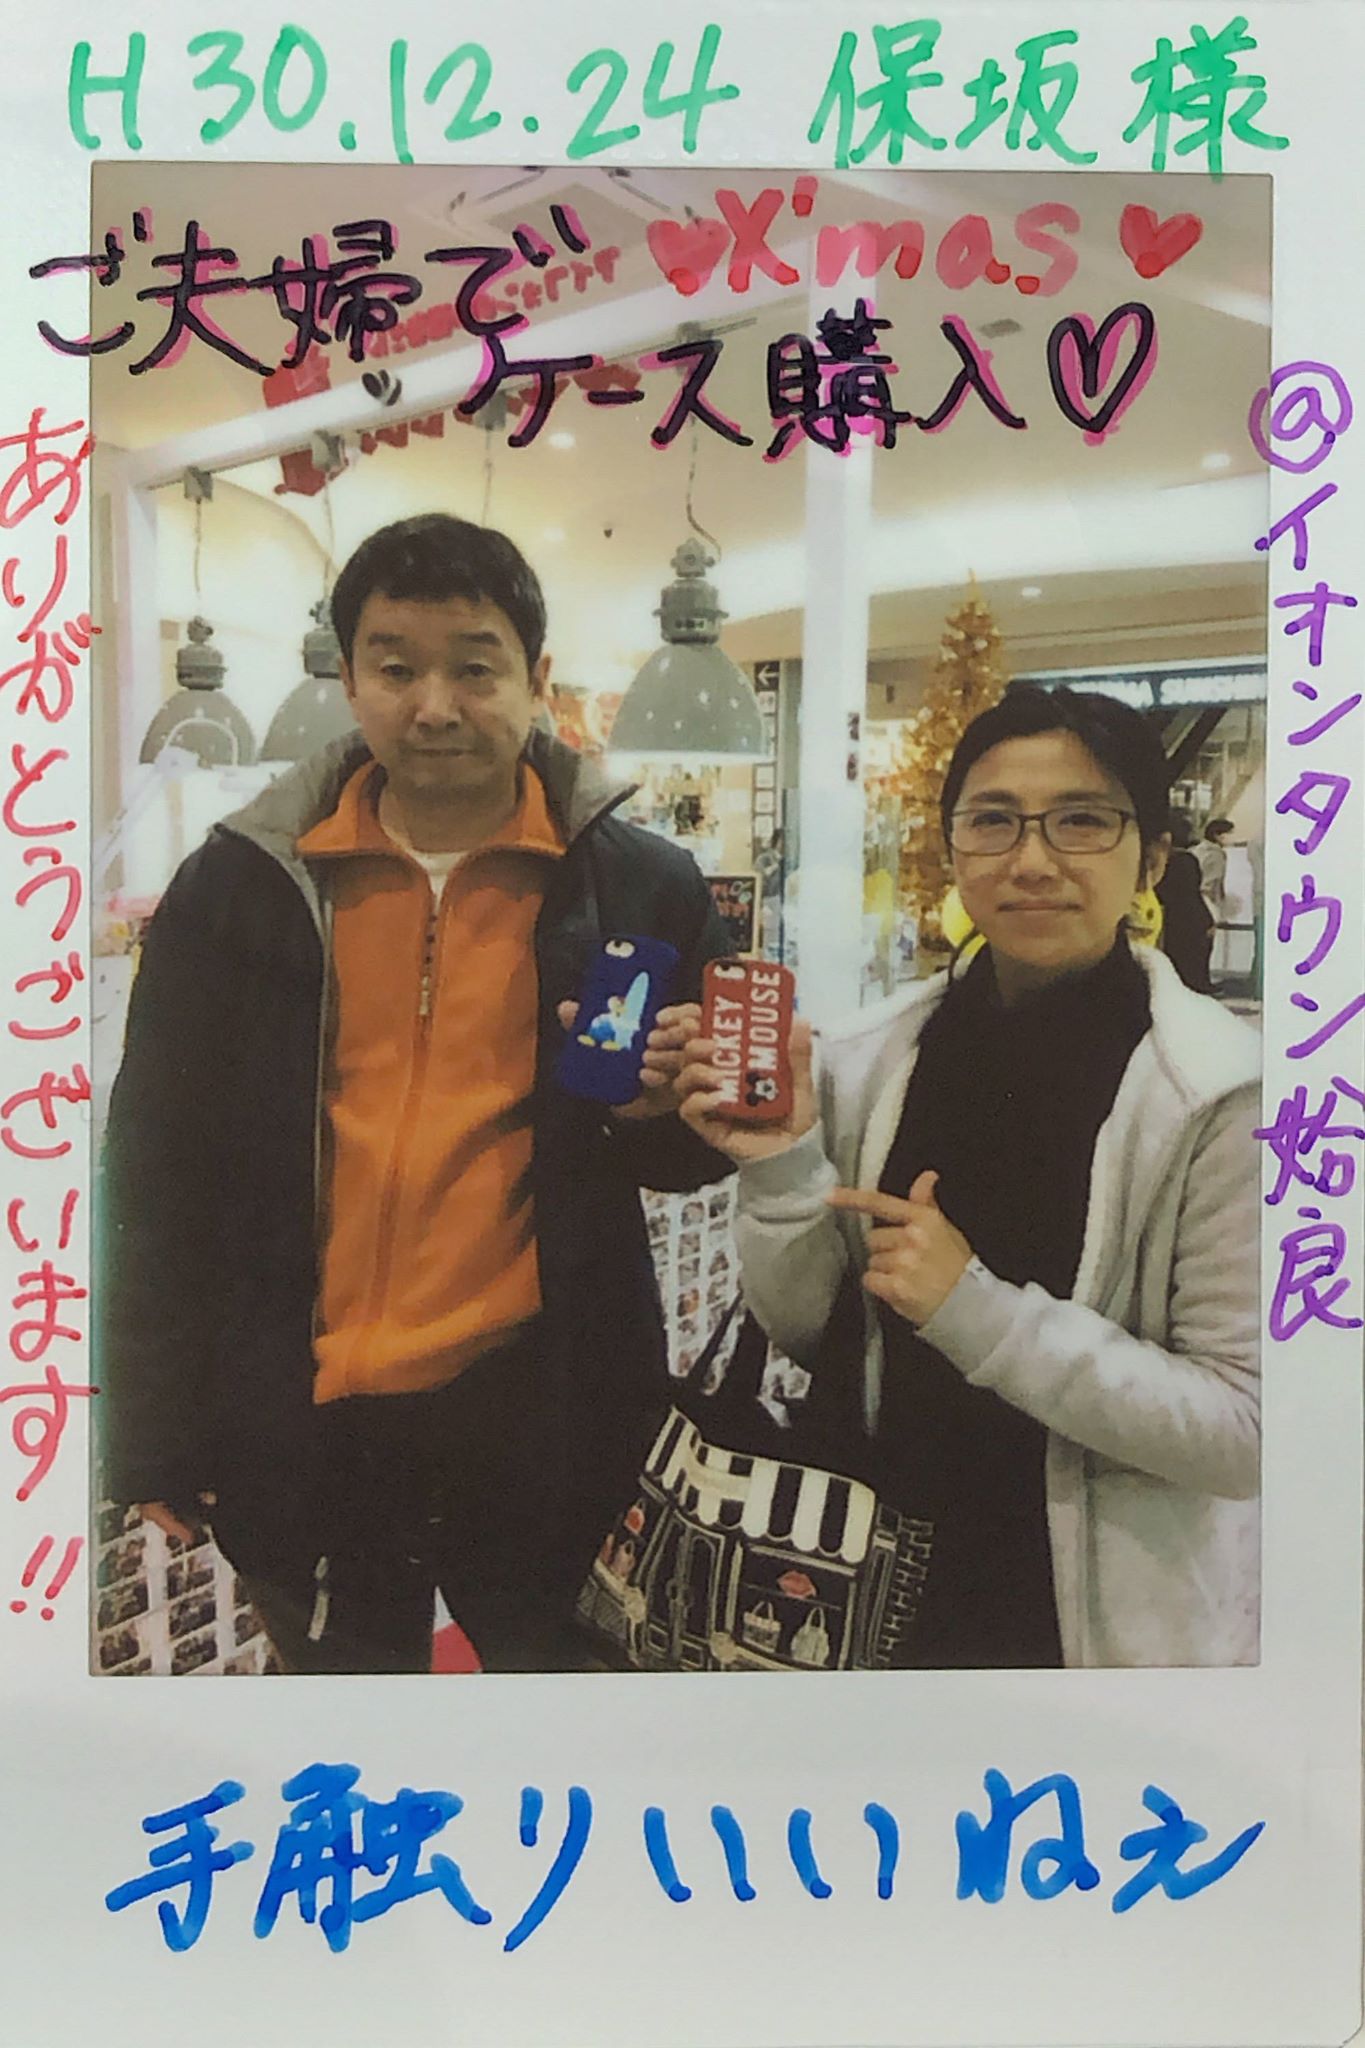 H30.12.24 保坂様
♥X'mas♥
ご夫婦で
ケース購入♡
ありがとうございます!!
@イオンタウン姶良
MICKEY
MOUSE
手触りいいねぇ